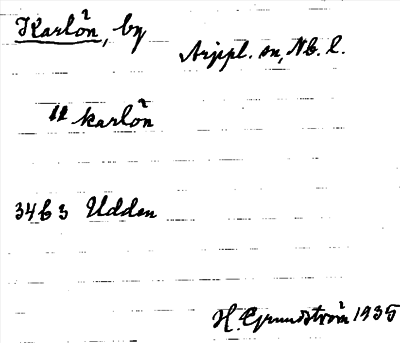 Karlön, by
Arjepl. sn, Nb. l.
karlön
3463 Udden
H. Grundström 1935